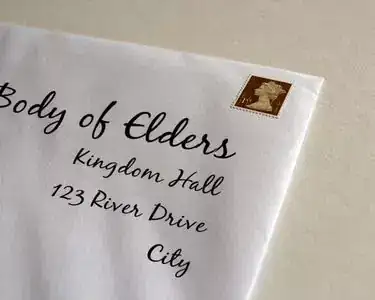 Body of Elders
Kingdom Hall
123 River Drive
City
1st